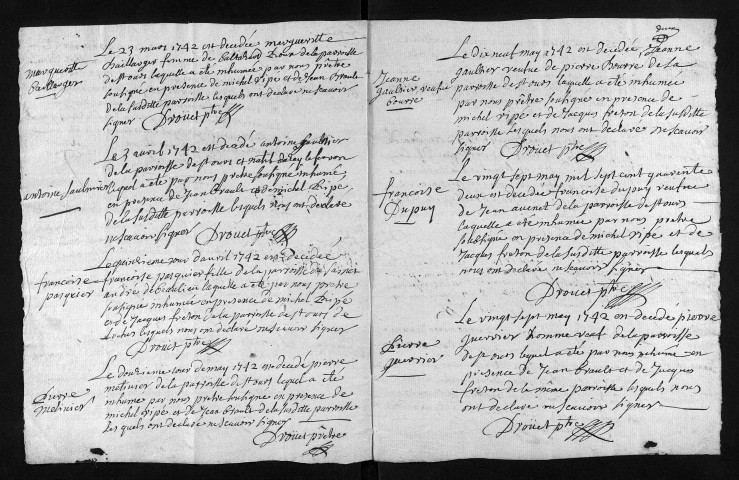 Le 23 mars 1742 est decedée marguerite
Baillarger femme de Balthazard de la parroisse
de st ours laquelle a été inhumée par nous prêtre
soussigné en presence de michel ripé et de Jean Brault
de la susditte parroisse lesquels ont déclaré ne scavoir
signer Drouet ptre
marguerite
Baillarger
Le 3 avril 1742 est decedé antoine Saulnier
de la parroisse de st ours
lequel a été par nous prêtre soussigné inhumé
en presence de Jean Brault et de michel Ripé
de la susditte parroisse lesquels nous ont déclaré
ne scavoir signer Drouet ptre
antoine Saulnier
Le quinzieme jour d'avril 1742 est decedée
francoise pasquier fille de la parroisse de saint
andré de beaulieu laquelle a été par nous prêtre
soussigné inhumée en presence de michel Ripé
et de Jacques freton de la parroisse de st ours de
Loches lesquels nous ont déclaré ne scavoir signer
Drouet ptre
francoise
pasquier
Le douzieme jour de may 1742 est decedé pierre
metivier de la parroisse de st ours lequel a été
inhumé par nous prêtre soussigné en presence de
michel ripé et de Jean Brault de la susditte parroisse
lesquels ont déclaré ne scavoir signer
Drouet prêtre
Pierre
metivier
Le dix neuf may 1742 est decedée Jeanne
gaultier veufve de pierre Bourre de la
parroisse de st ours laquelle a été inhumée
par nous prêtre soussigné en presence de
michel ripé et de Jacques freton de la susditte
parroisse lesquels nous ont déclaré ne scavoir
signer Drouet ptre
Jeanne
gaultier veufve
Bourre
Le vingt sept may mil sept cent quarente
deux est decedée francoise dupuy veufve
de Jean avenet de la parroisse de st ours
laquelle a été inhumée par nous prêtre
soussigné en presence de michel ripé et de
Jacques freton de la susditte parroisse lesquels
nous ont déclaré ne scavoir signer
Drouet ptre
francoise
Dupuy
Le vingt sept may 1742 est decedé pierre
guerrier homme veuf de la parroisse
de st ours lequel a été par nous inhumé en
présence de Jean Brault et de Jacques
freton de la même parroisse lesquels nous
ont déclaré ne scavoir signer
Drouet ptre
Pierre
guerrier